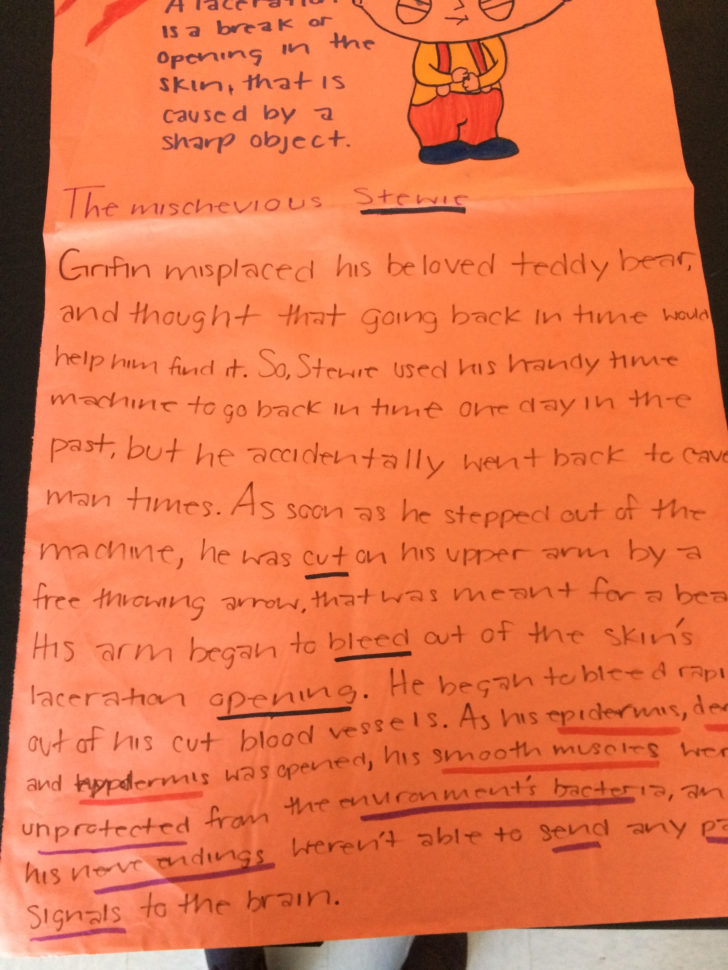 A laceration
is a break or
opening in the
skin, that is
caused by a
sharp object.
The mischevious Stewie
Grifin misplaced his beloved teddy bear,
and thought that going back in time would
help him find it. So, Stewie used his handy time
machine to go back in time one day in the
past, but he accidentally went back to cave
man times. As soon as he stepped out of the
machine, he was cut on his upper arm by a
free throwing arrow, that was meant for a bea
His arm began to bleed out of the skin's
laceration opening. He began to bleed rapi
out of his cut blood vessels. As his epidermis, der
and hypodermis was opened, his smooth muscles wer
unprotected from the environment's bacteria, an
his nerve endings weren't able to send any pa
signals to the brain.